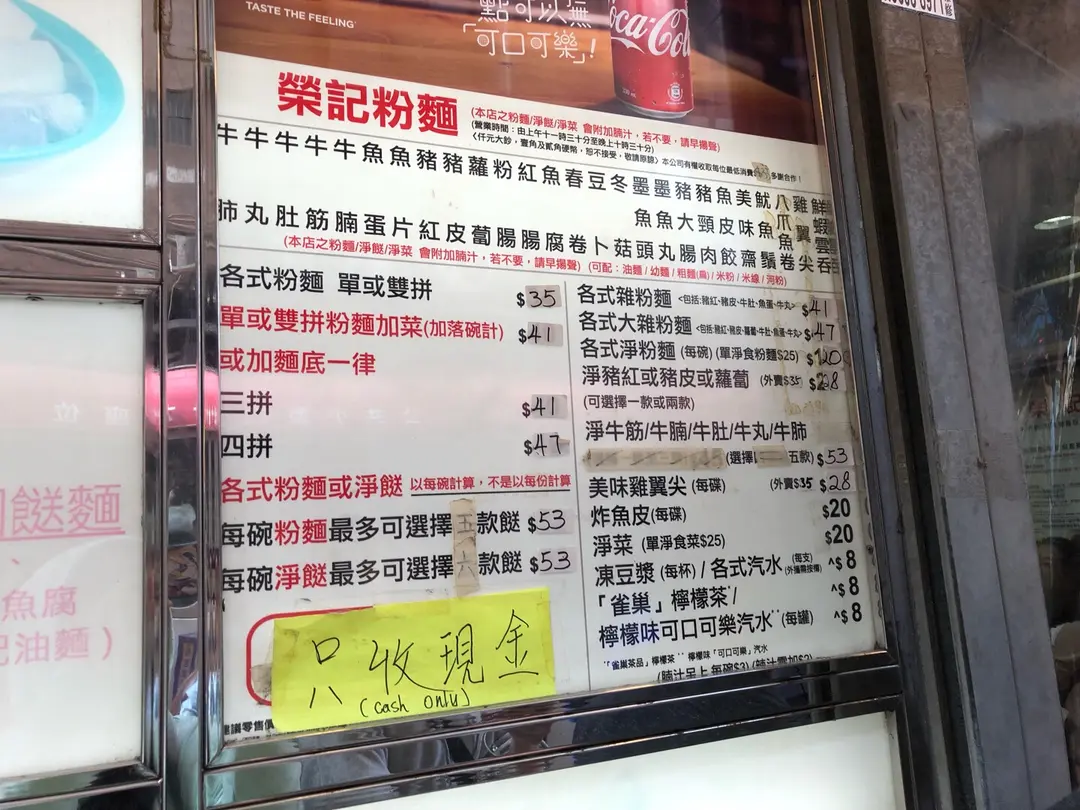 TASTE THE FEELING
點可以無
「可口可樂」!
Coca-Cola
榮記粉麵
(本店之粉麵/淨餸/淨菜 會附加腩汁，若不要，請早揚聲)
(營業時間：由上午十一時三十分至晚上十時三十分)
〈仟元大鈔，壹角及貳角硬幣，恕不接受，敬請原諒〉本公司有權收取每位最低消費 多謝合作！
牛牛牛牛牛魚魚豬豬蘿粉紅魚春豆冬墨墨豬豬魚美魷八雞鮮
魚魚大頸皮味魚爪翼蝦
肺丸肚筋腩蛋片紅皮蔔腸腸腐卷卜菇頭丸腸肉餃齋鬚卷尖吞
魚 雲
(本店之粉麵/淨餸/淨菜 會附加腩汁，若不要，請早揚聲) (可配：油麵/幼麵/粗麵(扁)/米粉/米線/河粉)
各式粉麵 單或雙拼 $35
單或雙拼粉麵加菜(加落碗計) $41
或加麵底一律
三拼 $41
四拼 $47
各式粉麵或淨餸 以每碗計算，不是以每份計算
每碗粉麵最多可選擇五款餸 $53
每碗淨餸最多可選擇六款餸 $53
各式雜粉麵 <包括:豬紅、豬皮、牛肚、魚蛋、牛丸> $41
各式大雜粉麵 <包括:豬紅、豬皮、蘿蔔、牛肚、魚蛋、牛丸> $47
各式淨粉麵 (每碗) (單淨食粉麵$25) $20
淨豬紅或豬皮或蘿蔔 (外賣$35) $28
(可選擇一款或兩款)
淨牛筋/牛腩/牛肚/牛丸/牛肺
(選擇 五款) $53
美味雞翼尖 (每碟) (外賣$35) $28
炸魚皮(每碟) $20
淨菜 (單淨食菜$25) $20
凍豆漿 (每杯) / 各式汽水 (每支) ^$8
「雀巢」檸檬茶¨/ ^$8
檸檬味可口可樂汽水¨ (每罐) ^$8
¨「雀巢茶品」檸檬茶¨ 檸檬味「可口可樂」汽水
只收現金
(cash only)
議零售價
餸麵
魚腐
油麵)